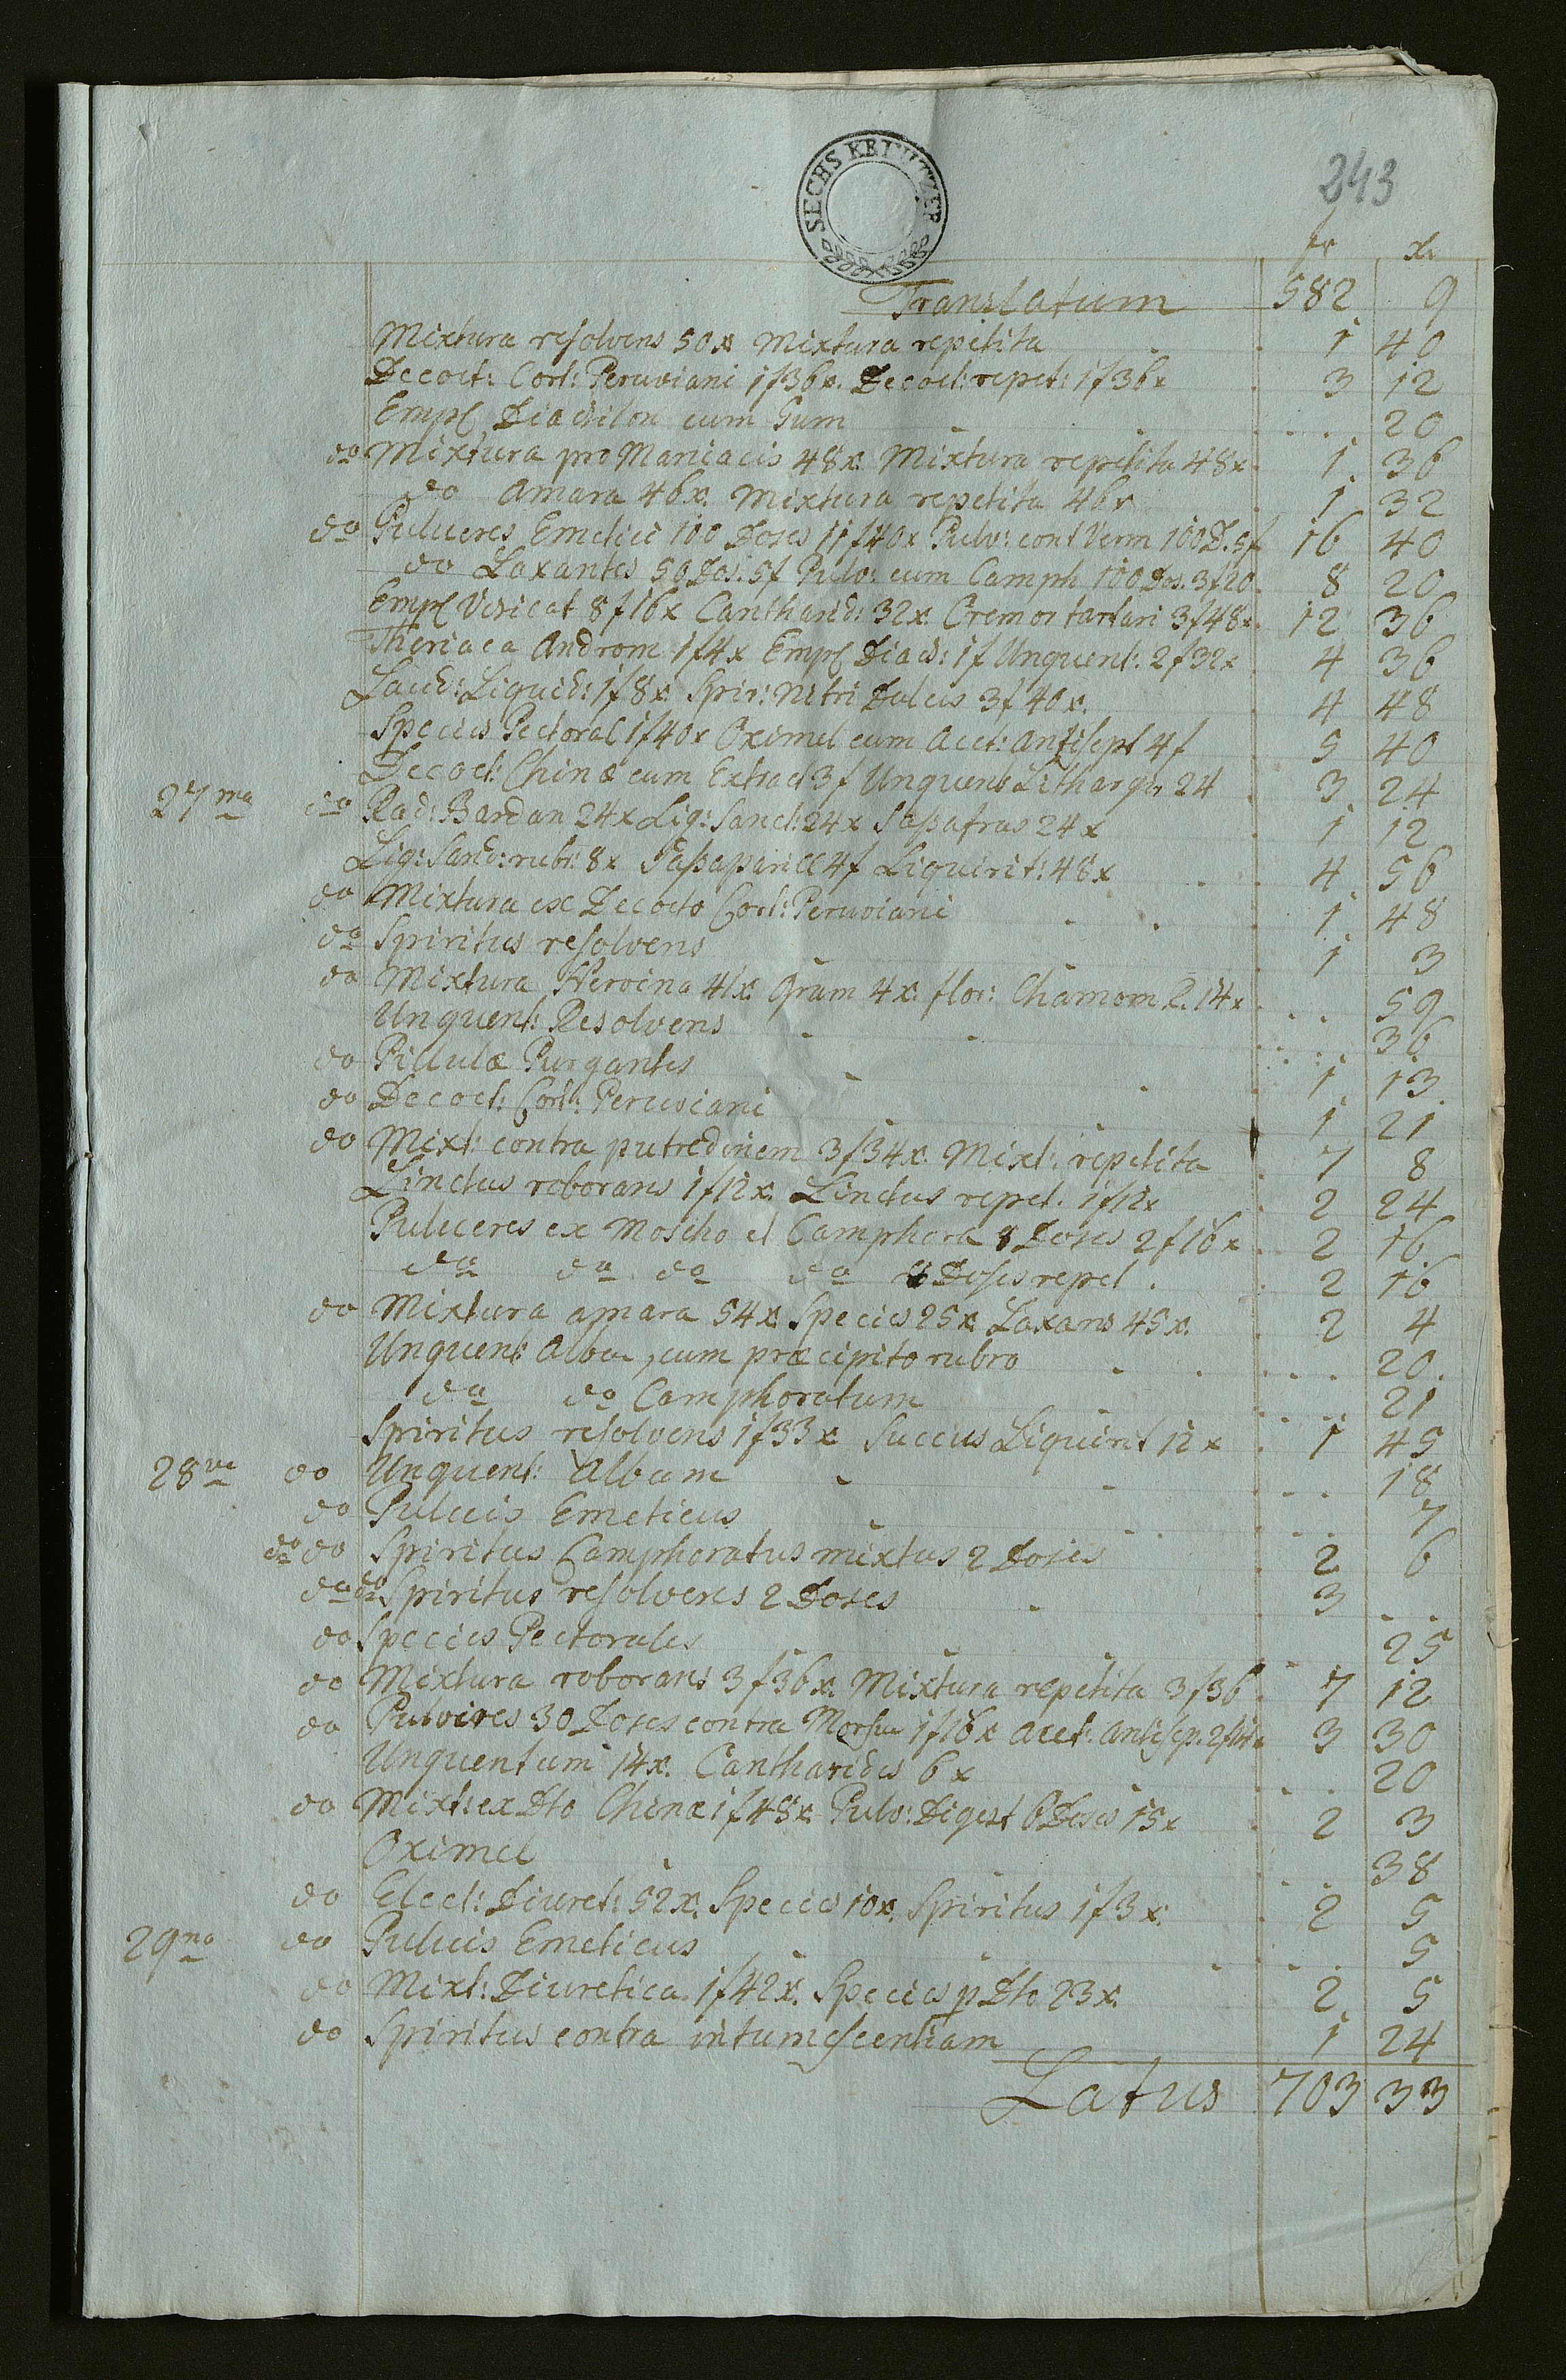 SECHS KREUTZER
243
fr xr
Translatum 582 9
Mixtura resolvens 50x Mixtura repetita 1 40
Decoct: Cort: Peruviani 1f36x. Decoct: repet: 1f36x 3 12
Empl Diachilon cum Gum 20
do Mixtura pro Maniacis 48x. Mixtura repetita 48x 1 36
do amara 46x. Mixtura repetita 46x 1 32
do Pulveres Emetici 100 Doses 11f40x Pulv: cont Verm 100D. 5f 16 40
do Laxantes 50 Dos: 5f Pulv: cum Camph 100 Dos. 3f20 8 20
Empl Vesicat 8f16x Cantharid: 32x. Cremor tartari 3f48x 12 36
Theriaca Androm 1f4x Empl Diach: 1f Unguent: 2f32x 4 36
Laud: Liquid: 1f8x. Spir: Nitri Dulcis 3f40x. 4 48
Species Pectoral 1f40x Oximel cum Acet: Antisept 4f 5 40
Decoct: Chinæ cum Extract 3f Unguent Lithargir 24 3 24
27ma do Rad: Bardan 24x Lig: Sanct: 24x Saßafras 24x 1 12
Lig: Sand: rubr: 8x Saßaparill 4f Liquirit: 48x 4 56
do Mixtura ex Decocto Cort: Peruviani 1 48
do Spiritus resolvens 1 3
do Mixtura Nervina 41x. Gram 4x. flor: Chamom R. 14x 59
Unguent: Resolvens 36
do Pillulæ Purgantes 1 13
do Decoct: Cort: Peruviani 1 21
do Mixt: contra putredinem 3f34x. Mixt: repetita 7 8
Linctus roborans 1f12x. Linctus repet. 1f12x 2 24
Pulveres ex Moscho et Camphora 8 Doses 2f16x 2 16
do do do do 8 Doses repet. 2 16
do Mixtura amara 54x. Species 25x. Laxans 45x. 2 4
Unguent: Album, cum præcipito rubro 20
do do Camphoratum 21
Spiritus resolvens 1f33x Succus Liquirit 12x 1 45
28va do Unguent: Album 18
do Pulvis Emeticus 7
do do Spiritus Camphoratus mixtus 2 Doses 2 6
do do Spiritus resolvens 2 Doses 3
do Species Pectorales 25
do Mixtura roborans 3f36x. Mixtura repetita 3f36 7 12
do Pulveres 30 Doses contra Morsum 1f16x Acet: Antisep. 2f14x 3 30
Unguentum 14x. Cantharides 6x 20
do Mixt: ex Dto Chinæ 1f48x. Pulv: Digest 6 Doses 15x 2 3
Oximel 38
do Elect: Diuret: 52x. Species 10x. Spiritus 1f3x. 2 5
29na do Pulvis Emeticus 5
do Mixt: Diuretica 1f42x. Species p Dto 23x. 2 5
do Spiritus contra intumescentiam 1 24
Latus 703 33